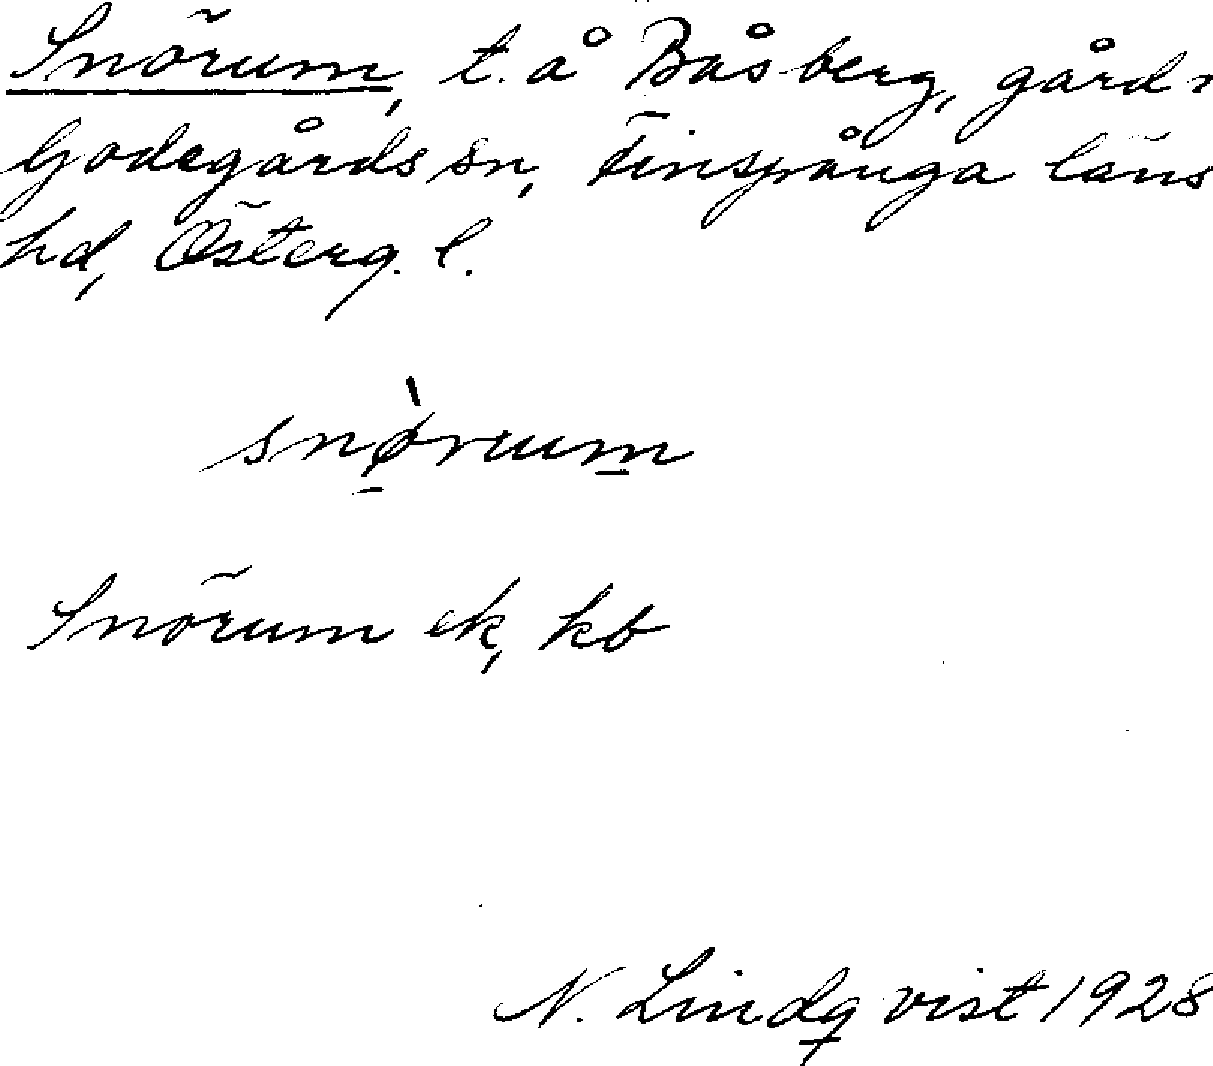 Snörum, t. å Båsberg, gård i
Godegårds sn, Finspånga läns
hd, Österg. l.
snø̀rum
Snörum ek, kb
N. Lindqvist 1928